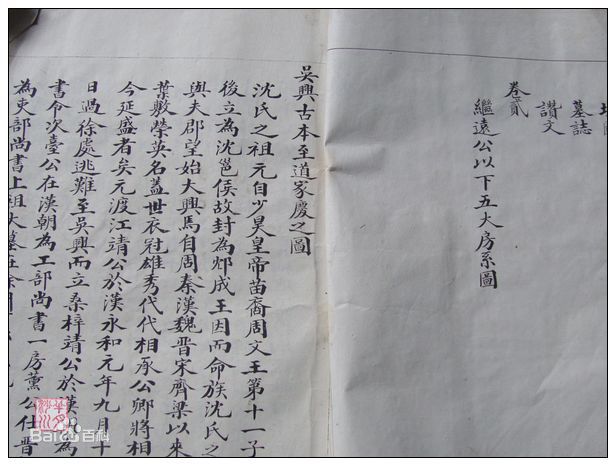 墓誌
讚文
卷貳
繼遠公以下五大房系圖
吳興古本至道家慶之圖
沈氏之祖元自少昊皇帝苗裔周文王第十一子
後立為沈邕侯故封為成王因而命族沈氏之
與夫郡望始大興焉自周秦漢魏晉宋齊梁以來
葉數榮英名蓋世衣冠雄秀代代相承公卿將相
今延盛者矣元渡江靖公於漢永和元年九月十
日過徐處逃難至吳興而立桑梓靖公於漢為
書令次臺公在漢朝為工部尚書一房薰公仕晉
為吏部尚書上祖大墓在
Baidu百科